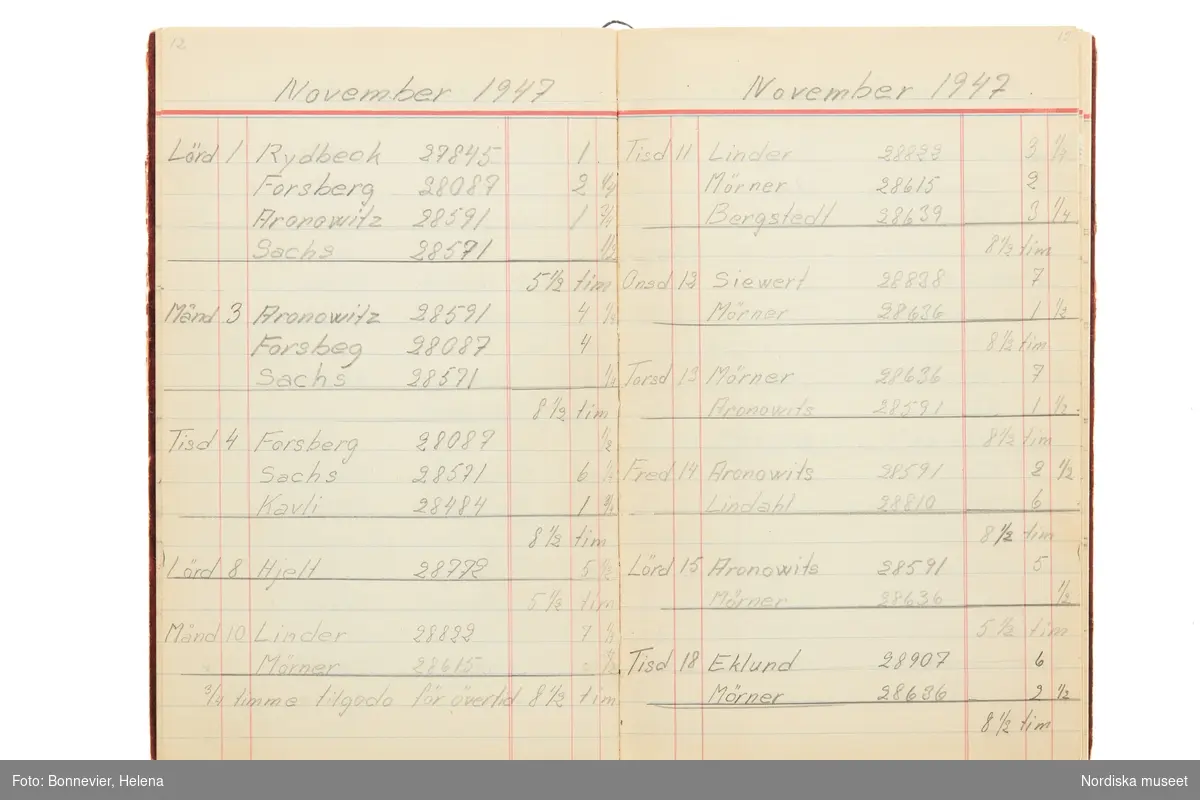 12
November 1947
Lörd 1 Rydbeck 27845 1
Forsberg 28087 2 1/4
Aronowitz 28591 1 3/4
Sachs 28571 1/2
5 1/2 tim
Månd 3 Aronowitz 28591 4
Forsbeg 28087 4
Sachs 28571
8 1/2 tim
Tisd 4 Forsberg 28087 1/2
Sachs 28571 6
Kavli 28484 1 3/4
8 1/2 tim
Lörd 8 Hjelt 28772 5 1/2
5 1/2 tim
Månd 10 Linder 28822 7
Mörner 28615
3/4 timme tilgodo för övertid 8 1/2 tim
November 1947
Tisd 11 Linder 28822 3 1/4
Mörner 28615 2
Bergstedt 28639 3 1/4
8 1/2 tim
Onsd 12 Siewert 28828 7
Mörner 28636 1 1/2
8 1/2 tim
Torsd 13 Mörner 28636 7
Aronowits 28591 1 1/2
8 1/2 tim
Fred 14 Aronowits 28591 2 1/2
Lindahl 28810 6
8 1/2 tim
Lörd 15 Aronowits 28591 5
Mörner 28636 1/2
5 1/2 tim
Tisd 18 Eklund 28907 6
Mörner 28636 2 1/2
8 1/2 tim
Foto: Bonnevier, Helena
Nordiska museet